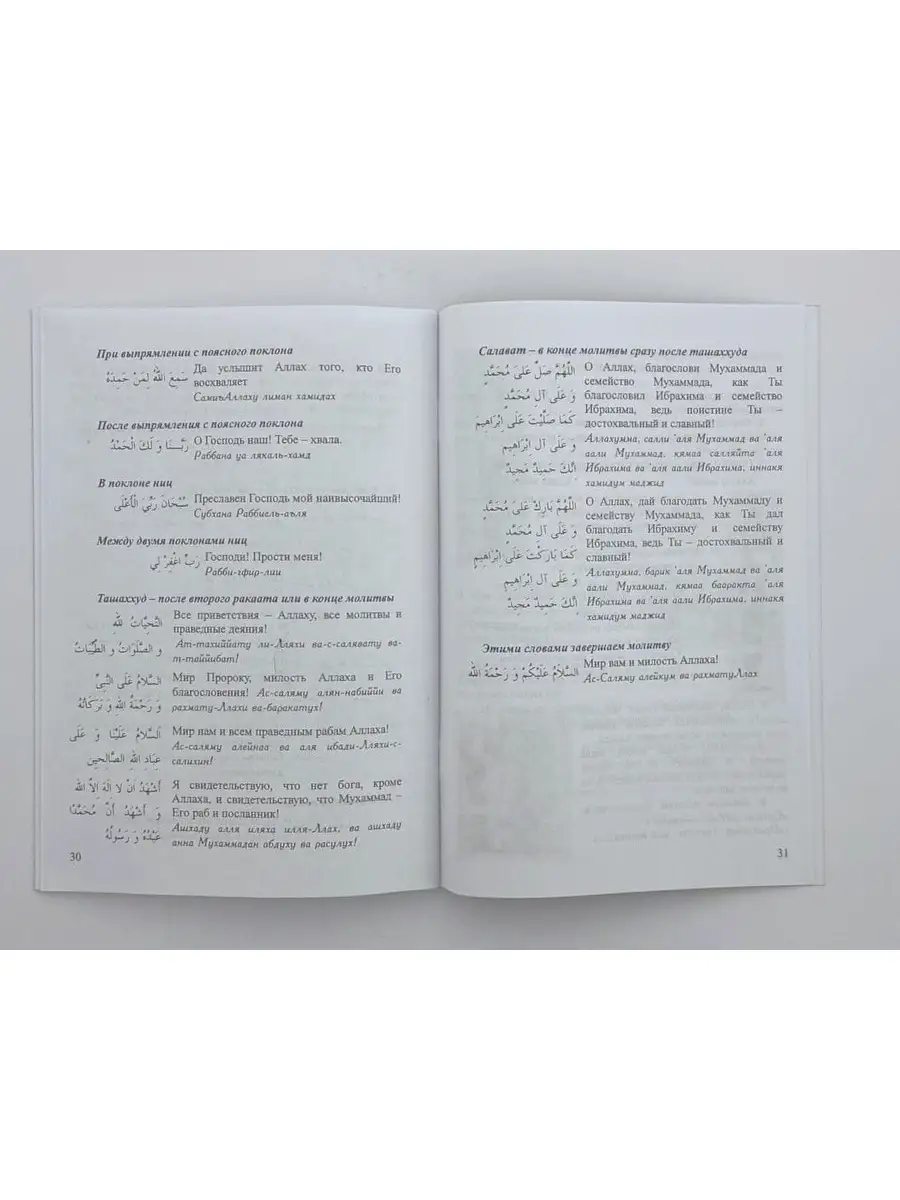 При выпрямлении с поясного поклона
سَمِعَ اللهُ لِمَنْ حَمِدَهُ
Да услышит Аллах того, кто Его
восхваляет
СамиъАллаху лиман хамидах
После выпрямления с поясного поклона
رَبَّنَا وَ لَكَ الْحَمْدُ
О Господь наш! Тебе – хвала.
Раббана уа лякаль-хамд
В поклоне ниц
سُبْحَانَ رَبِّيَ الْأَعْلَى
Преславен Господь мой наивысочайший!
Субхана Раббиель-аъля
Между двумя поклонами ниц
رَبِّ اغْفِرْ لِي
Господи! Прости меня!
Рабби-гфир-лии
Ташаххуд – после второго ракаата или в конце молитвы
التَّحِيَّاتُ لِلَّهِ
و الصَّلَوَاتُ و الطَّيِّبَاتُ
Все приветствия – Аллаху, все молитвы и
праведные деяния!
Ат-тахиййату ли-Лляхи ва-с-салявату ва-
т-таййибат!
السَّلَامُ عَلَى النَّبِيِّ
وَ رَحْمَةُ اللهِ وَ بَرَكَاتُهُ
Мир Пророку, милость Аллаха и Его
благословения! Ас-саляму алян-набиййи ва
рахмату-Ллахи ва-баракатух!
اَلسَّلَامُ عَلَيْنَا وَ عَلَى
عِبَادِ اللهِ الصَّالِحِين
Мир нам и всем праведным рабам Аллаха!
Ас-саляму алейнаа ва аля ибади-Лляхи-с-
салихин!
أَشْهَدُ اَنْ لَا اِلَهَ اِلاَّ الله
وَ اَشْهَدُ اَنَّ مُحَمَّدًا
عَبْدُهُ وَ رَسُولُهُ
Я свидетельствую, что нет бога, кроме
Аллаха, и свидетельствую, что Мухаммад –
Его раб и посланник!
Ашхаду алля иляха илля-Ллах, ва ашхаду
анна Мухаммадан абдуху ва расулух!
30
Салават – в конце молитвы сразу после ташаххуда
اللَّهُمَّ صَلِّ عَلَىَ مُحَمَّدٍ
وَ عَلَى آلِ مُحَمَّدٍ
كَمَا صَلَّيْتَ عَلَى اِبْرَاهِيمَ
وَ عَلَى آلِ اِبْرَاهِيم
اِنَّكَ حَمِيدٌ مَجِيدٌ
О Аллах, благослови Мухаммада и
семейство Мухаммада, как Ты
благословил Ибрахима и семейство
Ибрахима, ведь поистине Ты –
достохвальный и славный!
Аллахумма, салли 'аля Мухаммад ва 'аля
аали Мухаммад, кямаа салляйта 'аля
Ибрахима ва 'аля аали Ибрахима, иннакя
хамидум маджид
اللَّهُمَّ بَارِكْ عَلَىَ مُحَمَّدٍ
وَ عَلَى آلِ مُحَمَّدٍ
كَمَا بَارَكْتَ عَلَى اِبْرَاهِيم
وَ عَلَى آلِ اِبْرَاهِيم
اِنَّكَ حَمِيدٌ مَجِيدٌ
О Аллах, дай благодать Мухаммаду и
семейству Мухаммада, как Ты дал
благодать Ибрахиму и семейству
Ибрахима, ведь Ты – достохвальный и
славный!
Аллахумма, барик 'аля Мухаммад ва 'аля
аали Мухаммад, кямаа бааракта 'аля
Ибрахима ва 'аля аали Ибрахима, иннакя
хамидум маджид
Этими словами завершаем молитву
السَّلَامُ عَلَيْكُمْ وَ رَحْمَةُ الله
Мир вам и милость Аллаха!
Ас-Саляму алейкум ва рахматуЛлах
31